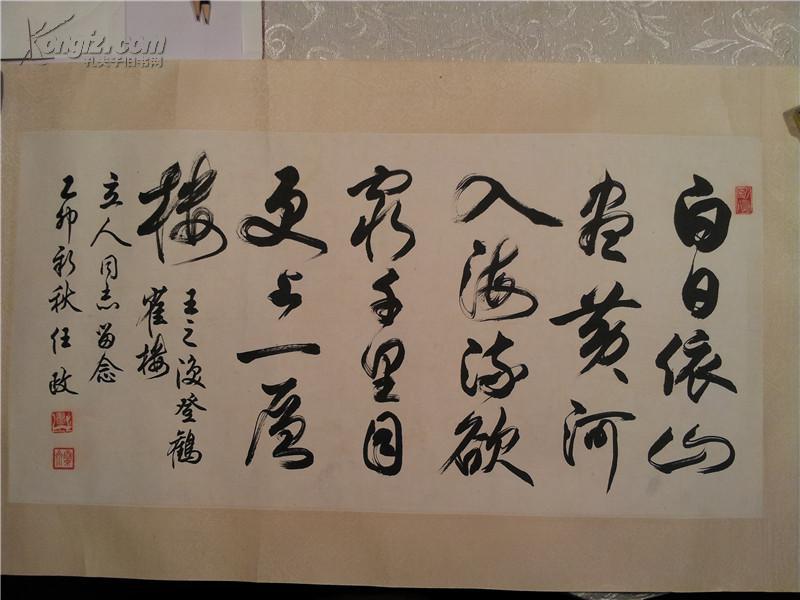 白日依山
盡黄河
入海流欲
窮千里目
更上一層
樓
王之渙登鸛
雀樓
立人同志留念
乙卯新秋任政
Kongfz.com
孔夫子旧书网